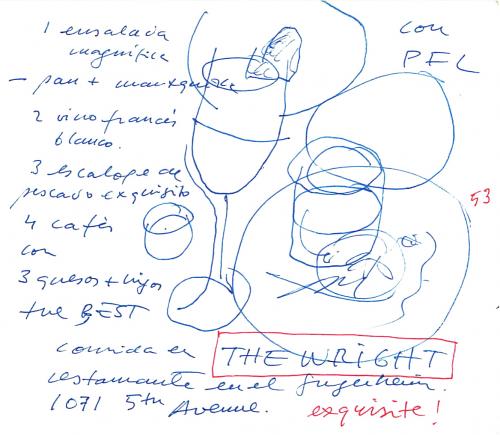 1 ensalada
magnífica
con
PEL
- pan + mantequilla
2 vino francés
blanco.
3 escalope de
pescado exquisito
53
4 cafés
con
3 quesos + higos
the BEST
comida en THE WRIGHT
restaurante en el Gugenheim.
1071 5th Avenue. exquisite!